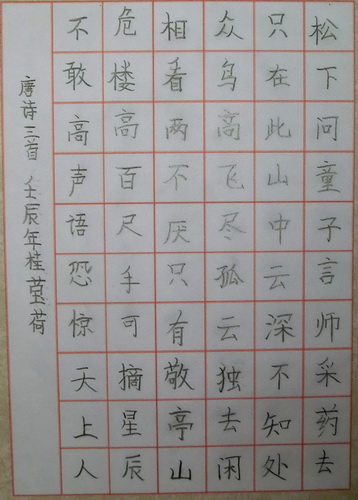 松下问童子言师采药去
只在此山中云深不知处
众鸟高飞尽孤云独去闲
相看两不厌只有敬亭山
危楼高百尺手可摘星辰
不敢高声语恐惊天上人
唐诗三首 壬辰年桂莹荷